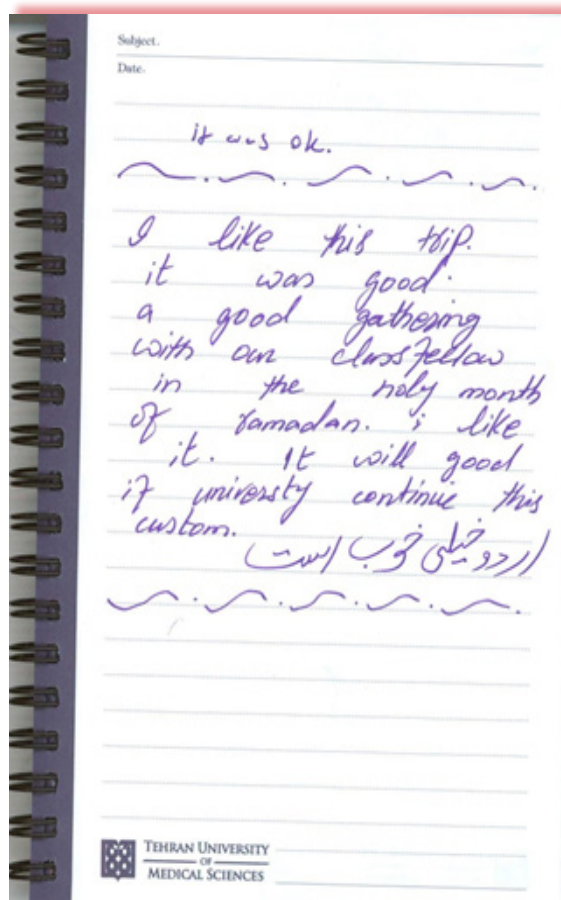 Subject.
Date.
it was ok.
I like this trip.
it was good.
a good gathering
with our class fellow
in the holy month
of ramadan. i like
it. It will good
if university continue this
custom.
اردو خیلی خوب است
TEHRAN UNIVERSITY
OF
MEDICAL SCIENCES